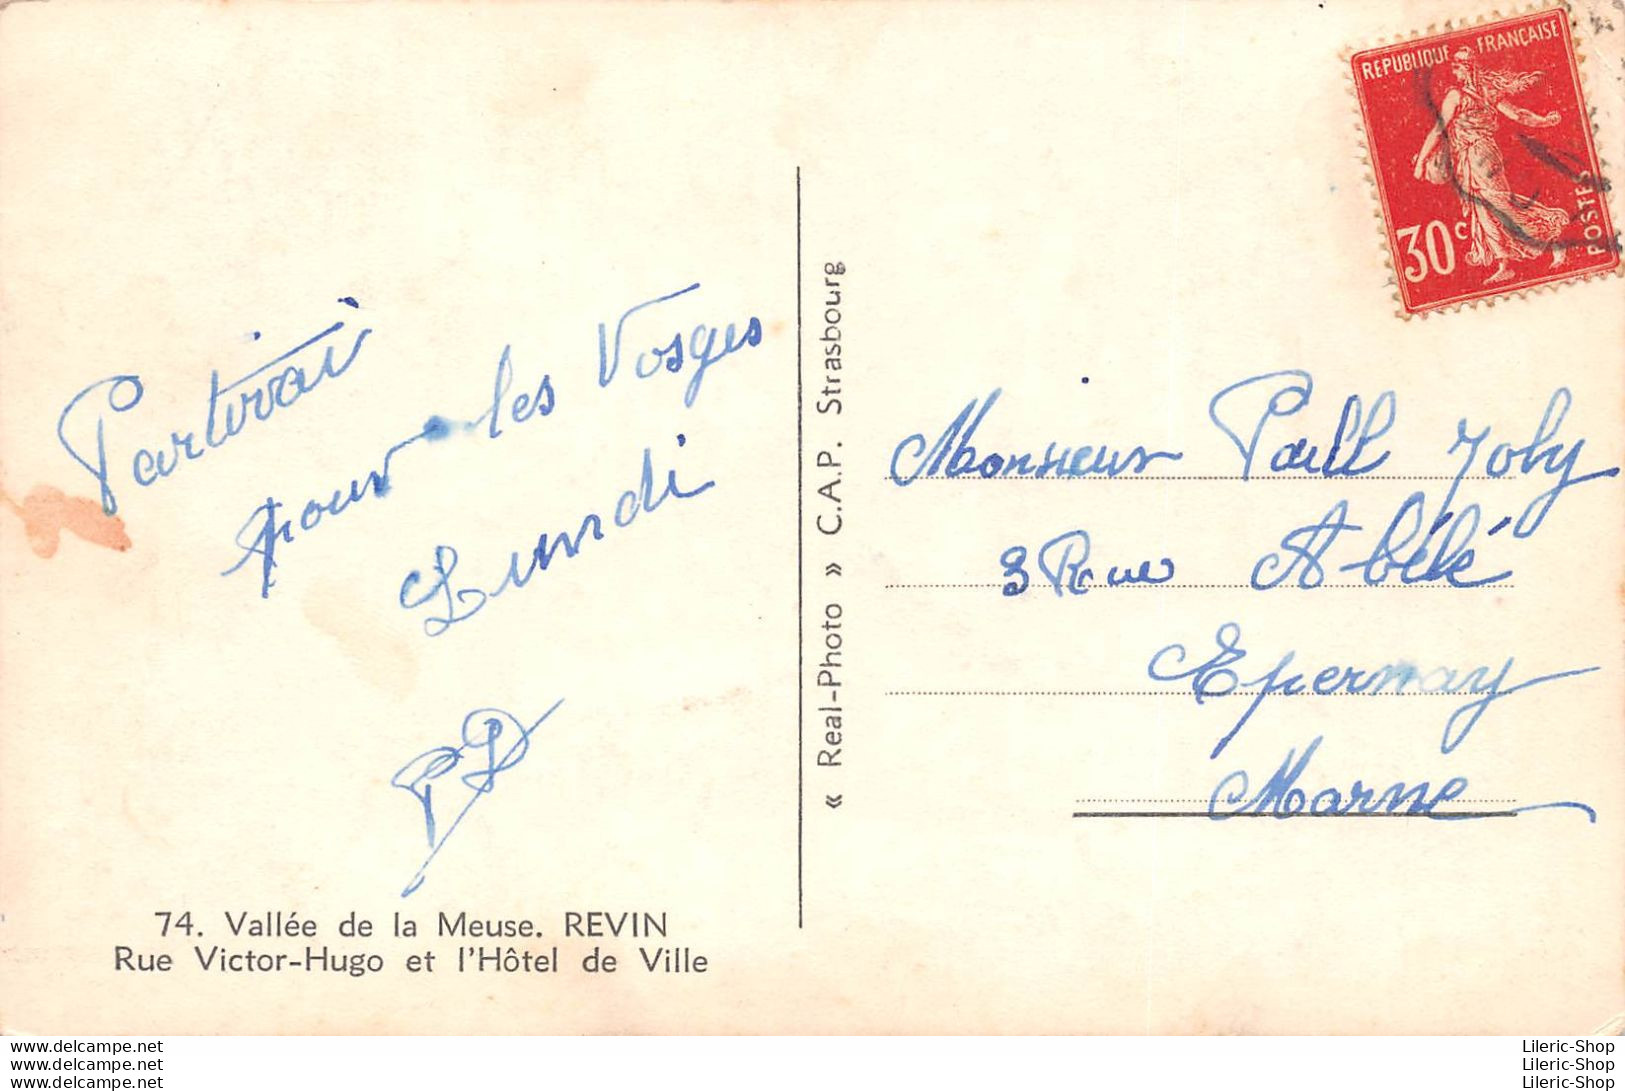 Partirai
pour les Vosges
Lundi
PD
74. Vallée de la Meuse. REVIN
Rue Victor-Hugo et l'Hôtel de Ville
« Real-Photo » C.A.P. Strasbourg
REPUBLIQUE FRANÇAISE
30 c
POSTES
Monsieur Paul Joly
3 Rue Abélé
Epernay
Marne
www.delcampe.net
www.delcampe.net
www.delcampe.net
Lileric-Shop
Lileric-Shop
Lileric-Shop